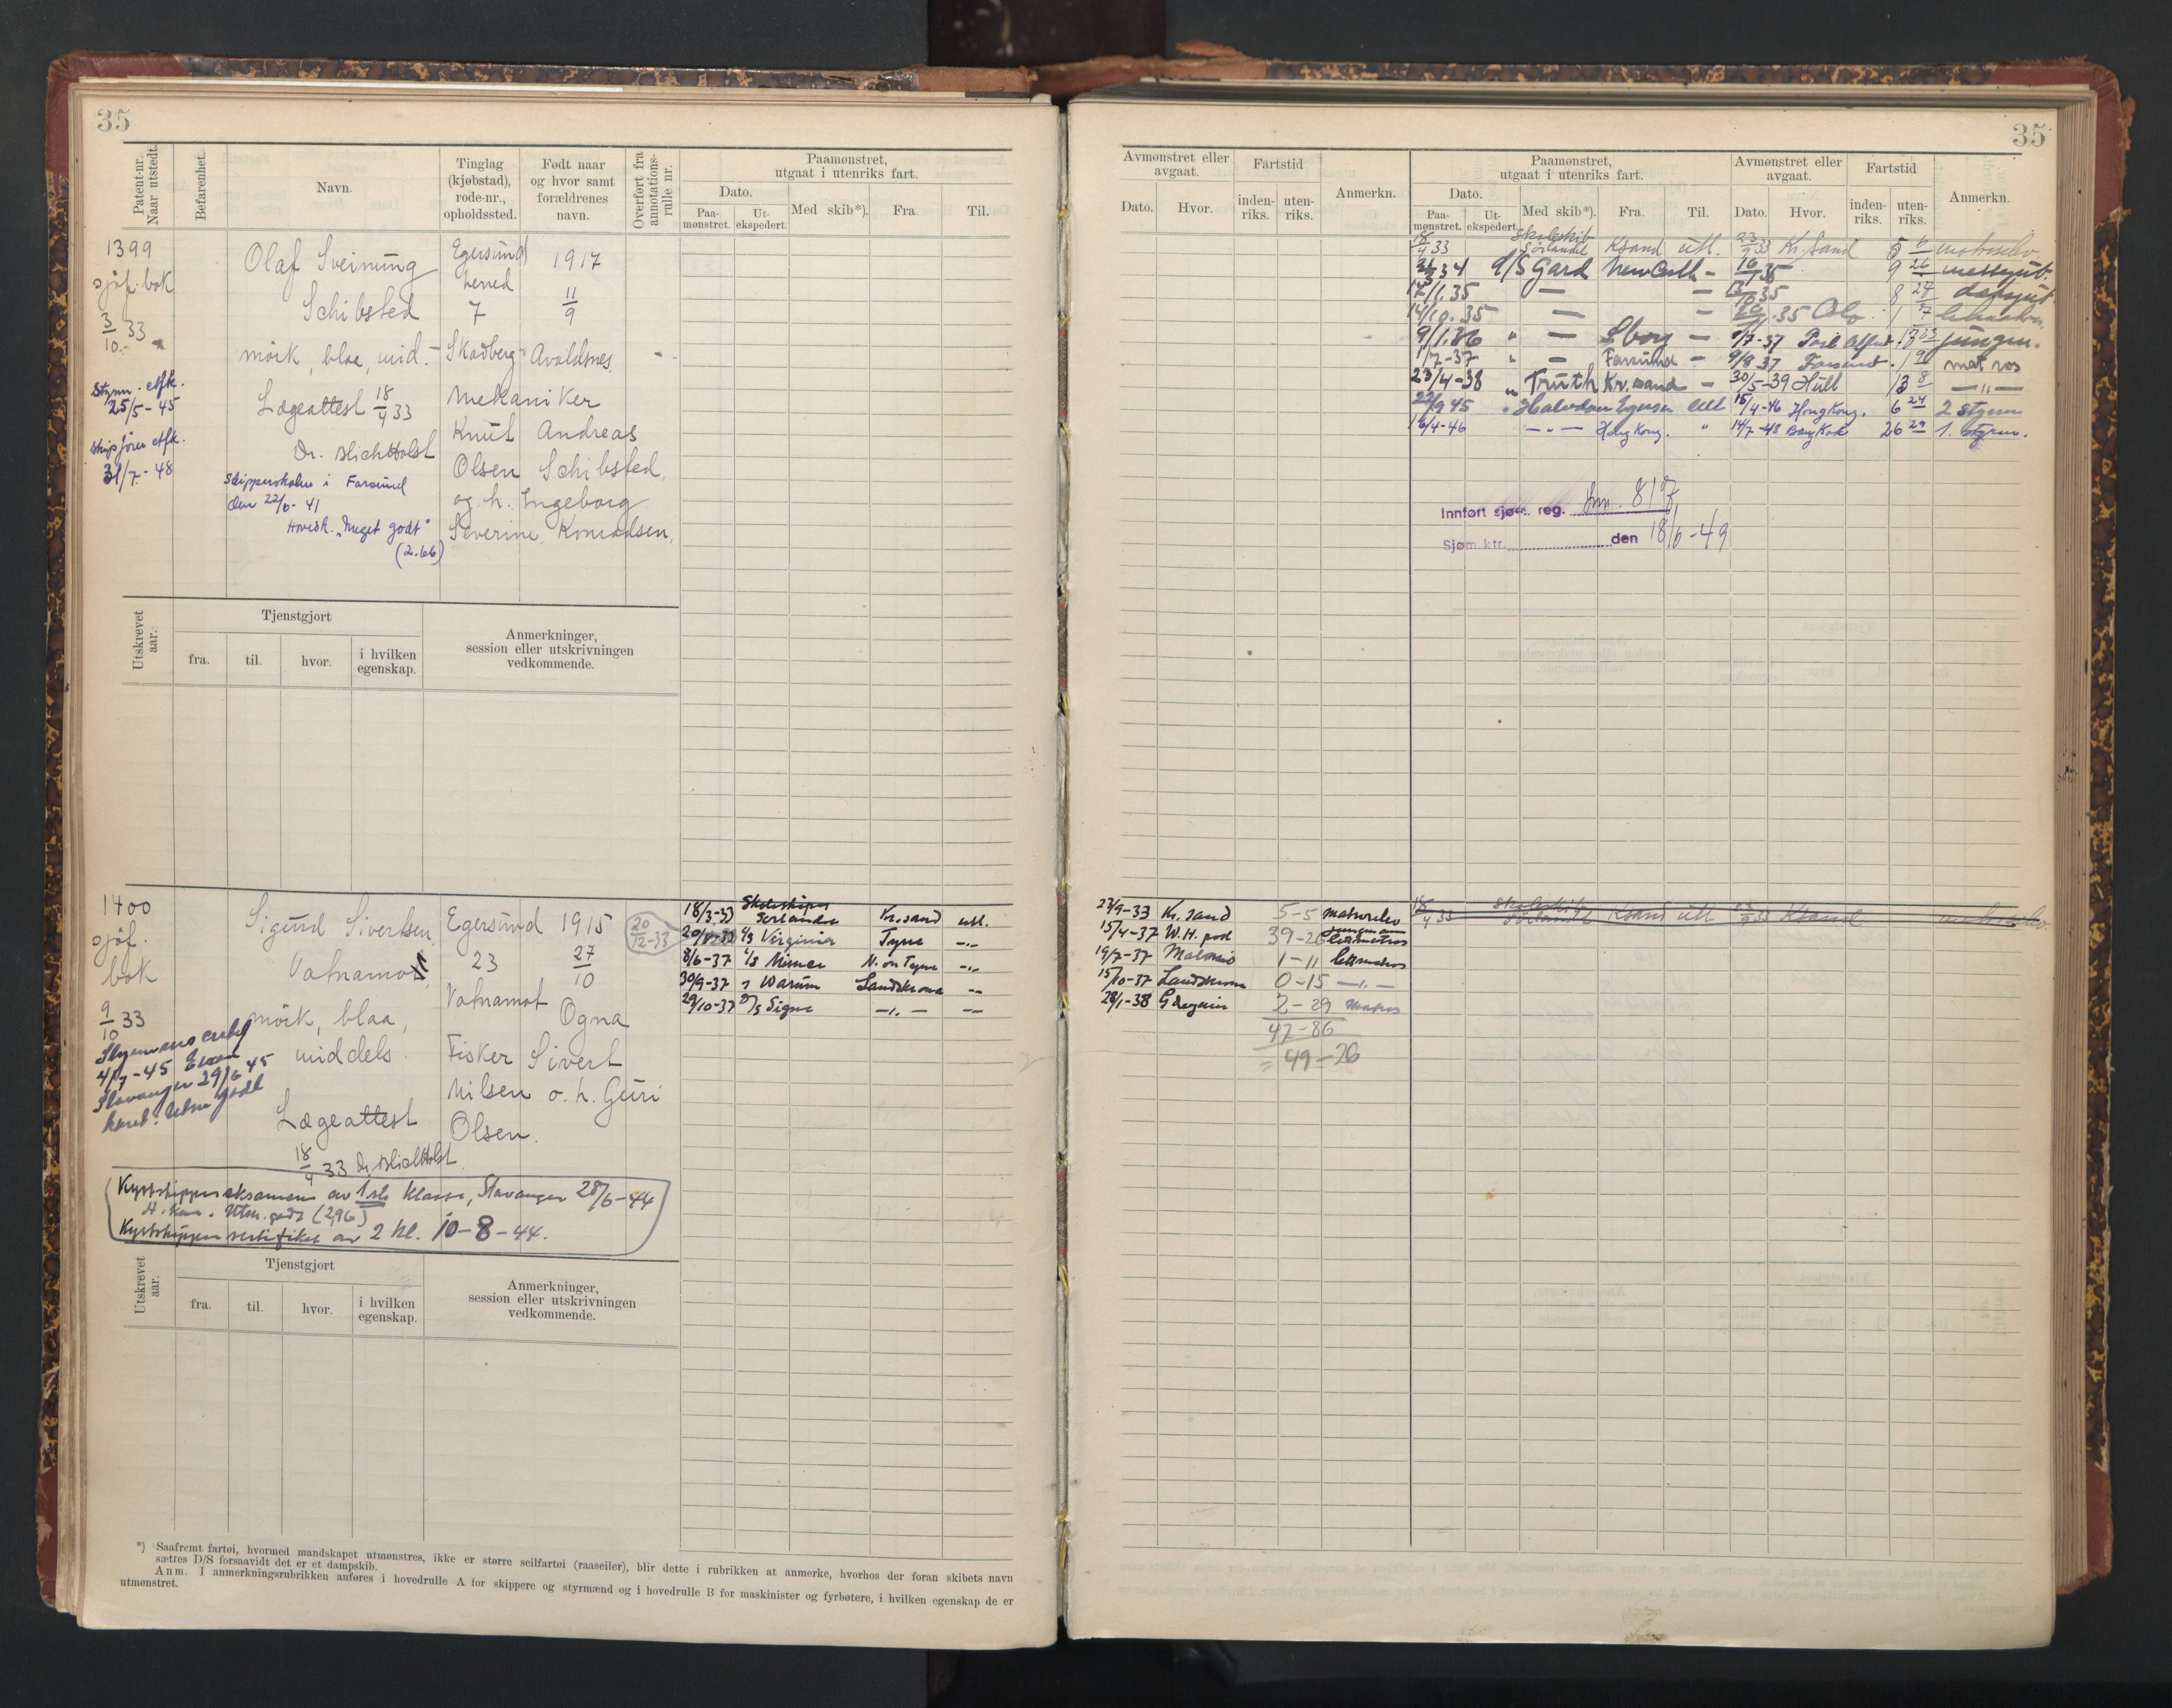 35
Patent-nr. Naar utstedt.
Befarenhet.
Navn.
Tinglag (kjøbstad), rode-nr., opholdssted.
Født naar og hvor samt forældrenes navn.
Overført fra annotations-rulle nr.
Paamønstret, utgaat i utenriks fart.
Dato.
Paa-mønstret.
Ut-ekspedert.
Med skib*).
Fra.
Til.
1399
sjøf. bok
3/10 33
Styrm. ctfk.
25/5 - 45
Skipsfører ctfk.
31/7 - 48
Olaf Sveinung
Schibsted
mörk, blaa, mid.
Lægeattest 18/4 33
Dr. Blich Holst
Skipperskolen i Farsund
den 22/6 - 41
Hovedk. "Meget godt"
(2.66)
Egersund 1917
herred
7 11/9
Skadberg Avaldsnes
Mekaniker
Knut Andreas
Olsen Schibsted,
og h. Ingeborg
Severine Konradsen,
Utskrevet aar.
Tjenstgjort
fra.
til.
hvor.
i hvilken egenskap.
Anmerkninger, session eller utskrivningen vedkommende.
1400
sjöf.
bok
9/10 33
4/7 - 45
Stavanger 29/6 45
Sigurd Sivertsen
Vatnamot
mörk, blaa,
middels.
Lægeattest
18/4 33 Dr Blich Holst
Egersund 1915
23 27/10
Vatnamot Ogna
Fisker Sivert
Nilsen o. h. Guri
Olsen.
20/12-33
18/3-33 Skoleskipet Sørlandet Kr.sand utl.
Virginia Tyne -"-
8/6-37 Mimer N. on Tyne -"-
30/9-37 Warum Landskrona -"-
29/10-37 D/S Signe -"- -"-
Kystskippereksamen av 1ste klasse, Stavanger 28/6-44
H. kar. Utm. godt (2,96)
Kystskipper sertifikat av 2 kl. 10-8-44.
Utskrevet aar.
Tjenstgjort
fra.
til.
hvor.
i hvilken egenskap.
Anmerkninger, session eller utskrivningen vedkommende.
*) Saafremt fartøi, hvormed mandskapet utmønstres, ikke er større seilfartøi (raaseiler), blir dette i rubrikken at anmerke, hvorhos der foran skibets navn
sættes D/S forsaavidt det er et dampskib.
Anm. I anmerkningsrubrikken anføres i hovedrulle A for skippere og styrmænd og i hovedrulle B for maskinister og fyrbøtere, i hvilken egenskap de er
utmønstret.
35
Avmønstret eller avgaat.
Dato.
Hvor.
Fartstid
inden-riks.
uten-riks.
Anmerkn.
Paamønstret, utgaat i utenriks fart.
Dato.
Paa-mønstret.
Ut-ekspedert.
Med skib*).
Fra.
Til.
Avmønstret eller avgaat.
Dato.
Hvor.
Fartstid
inden-riks.
uten-riks.
Anmerkn.
18/4 33 Skoleskib Sørlandet Ksand utl. 23/9 33 Kr. Sand 5 6 matroselev
Gard Newcastl - 9 26 messgut.
17/1.35 - - 8 24 dekgut
14/10.35 - - 35 Oslo 1 7
9/1.36 " - Sborg - 9/7-37 17 23 jungm.
1/7-37 " - Farsund - 9/9 37 Farsund 1 9 matros
23/4-38 " Truth Kr.sand - 30/5-39 Hull 13 8 -"-
22/9 45 " Utl 15/4-46 Hong Kong. 6 24 2 styrm
16/4-46 -"- Hong Kong. " 14/7-48 Bangkok 26 29 1. styrm.
Innført sjøm. reg. 817
Sjøm. ktr. den 18/6-49
23/9-33 Kr. sand 5-5 matroselev
15/4-37 39-26 jungmann lettmatros
19/7-37 Malmö 1-11 lettmatros
15/10-37 Landskrona 0-15 -"-
28/1-38 2-29 Matros
47-86
= 49-26
18/4 33 Skoleskib Sørlandet Ksand utl 23/9 33 Ksand matroselev